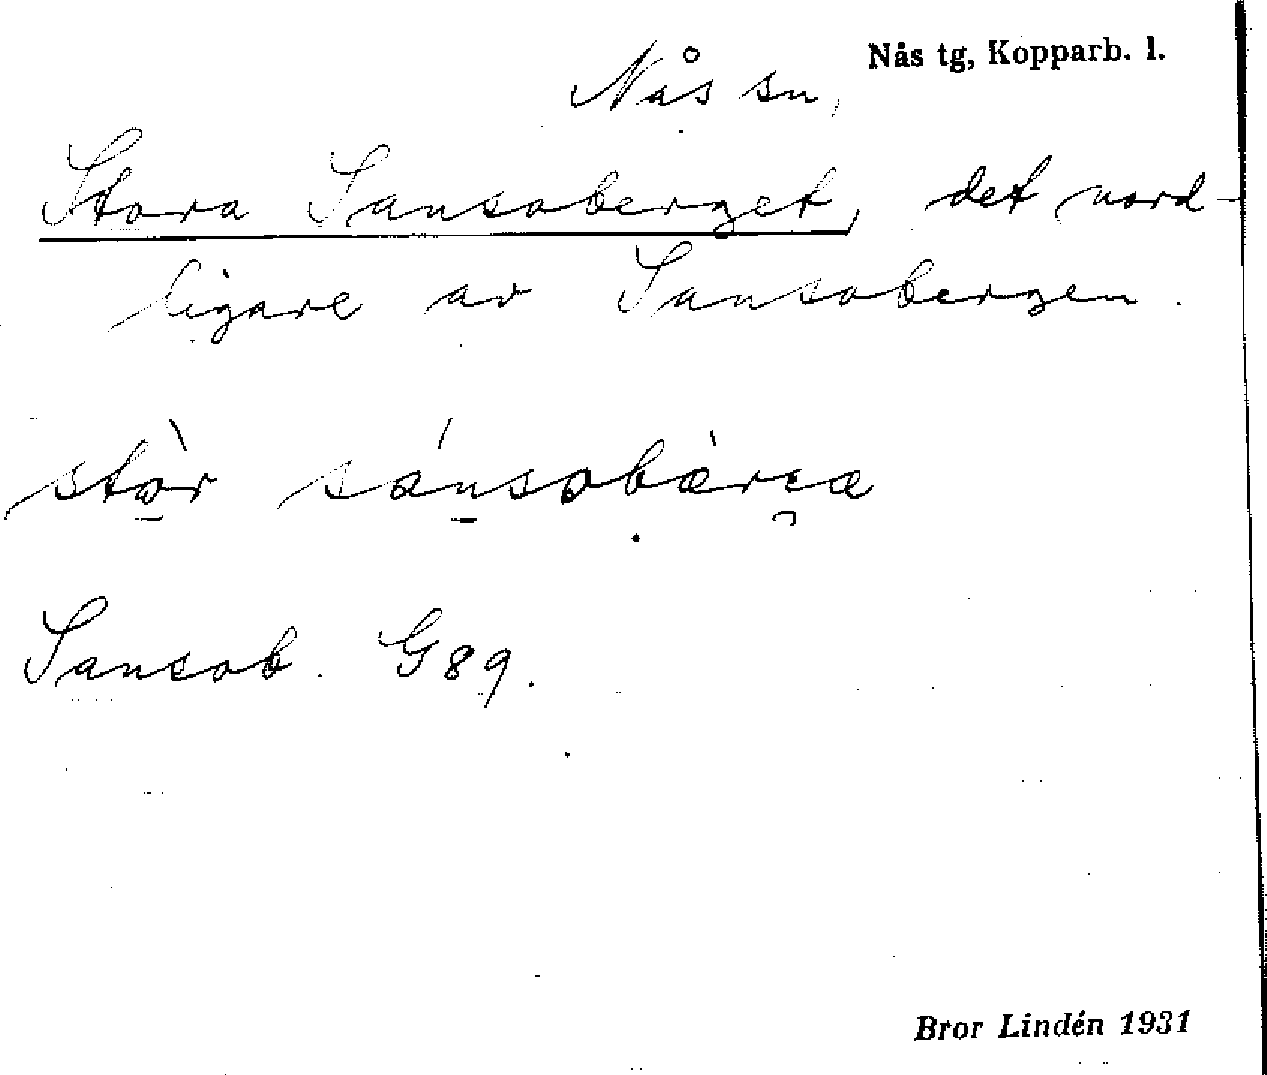 Nås tg, Kopparb. l.
Nås sn,
Stora Sansoberget, det nord-
ligare av Sansobergen.
stò̠r sán̠sobàrɛa
Sansob. G89.
Bror Lindén 1931